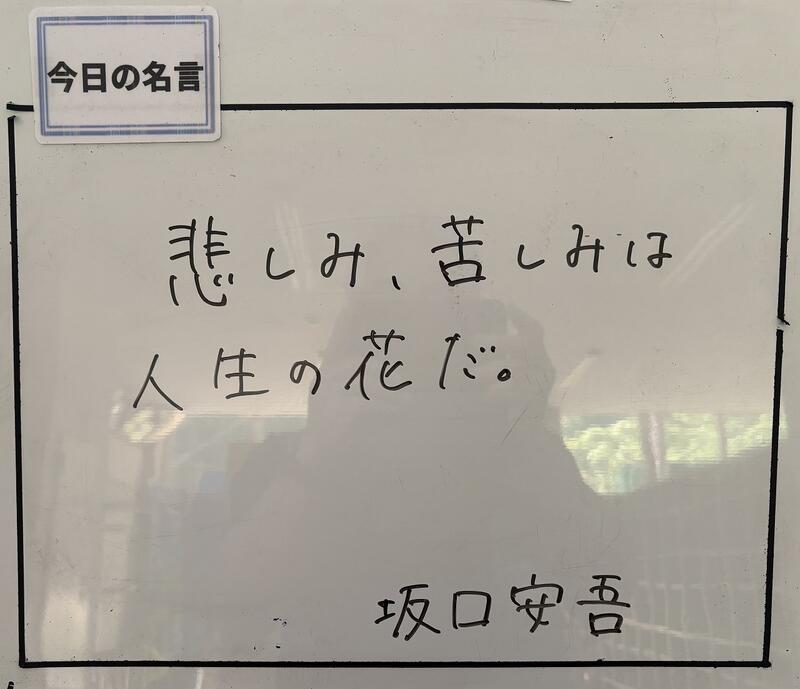 今日の名言
悲しみ、苦しみは
人生の花だ。
坂口安吾